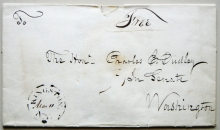 To
Free
The Honl. Charles E. Dudley
In Senate
Washington